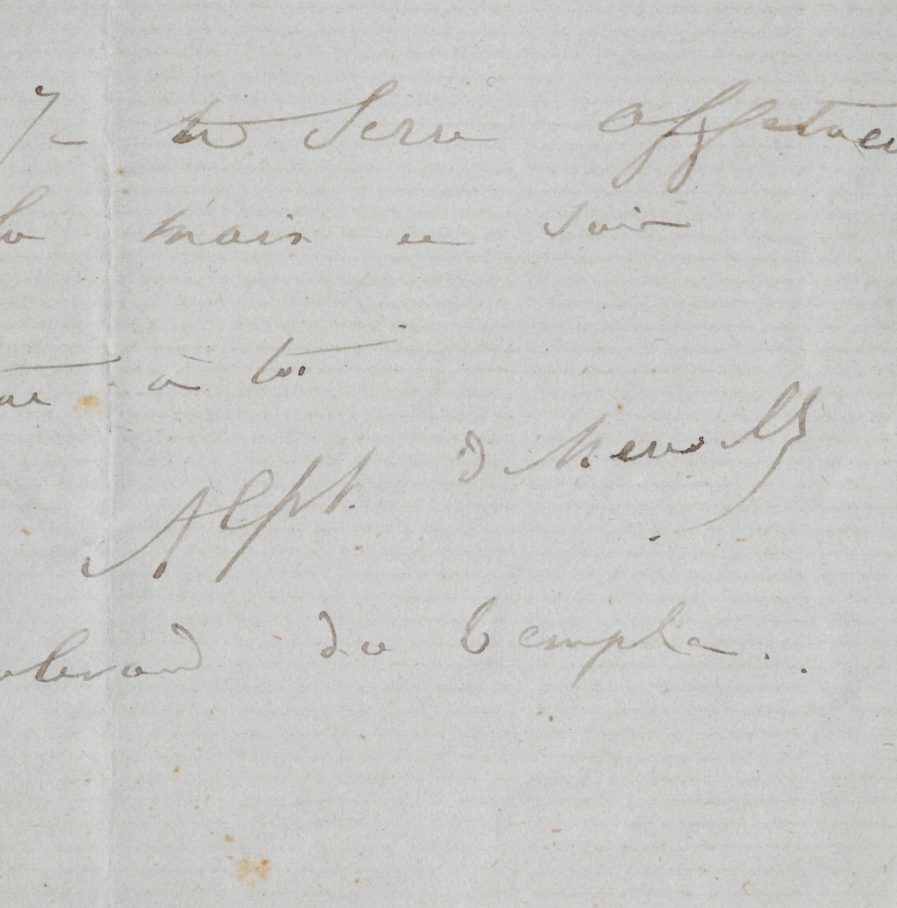 Je te serre affectue
la main ce soir
à toi
Alph. de Neuvill
boulevard du temple.